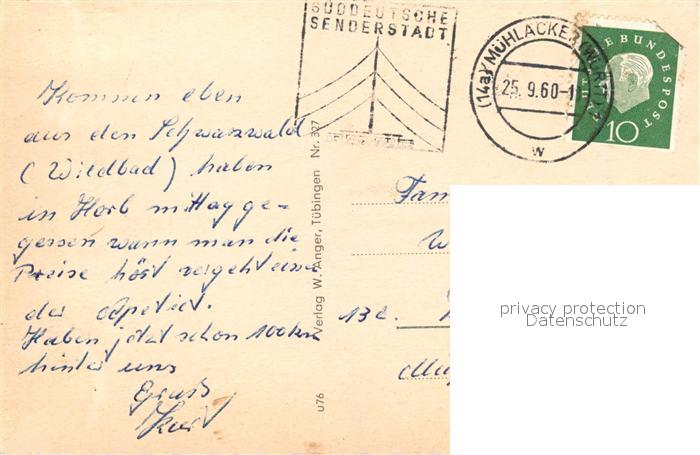 SÜDDEUTSCHE
SENDERSTADT
(14a) MÜHLACKER (WÜRTT)
25.9.60-1
W
DEUTSCHE BUNDESPOST
10
Kommen eben
aus den Schwarzwald
(Wildbad) haben
in Horb mittagge-
gessen wann man die
Preise hört vergeht einen
der Apetiet.
Haben jetzt schon 100 km
hinter uns
Gruß
Kurt
Verlag W. Anger, Tübingen Nr. 327
u76
Fam
W
13a.
privacy protection
Datenschutz